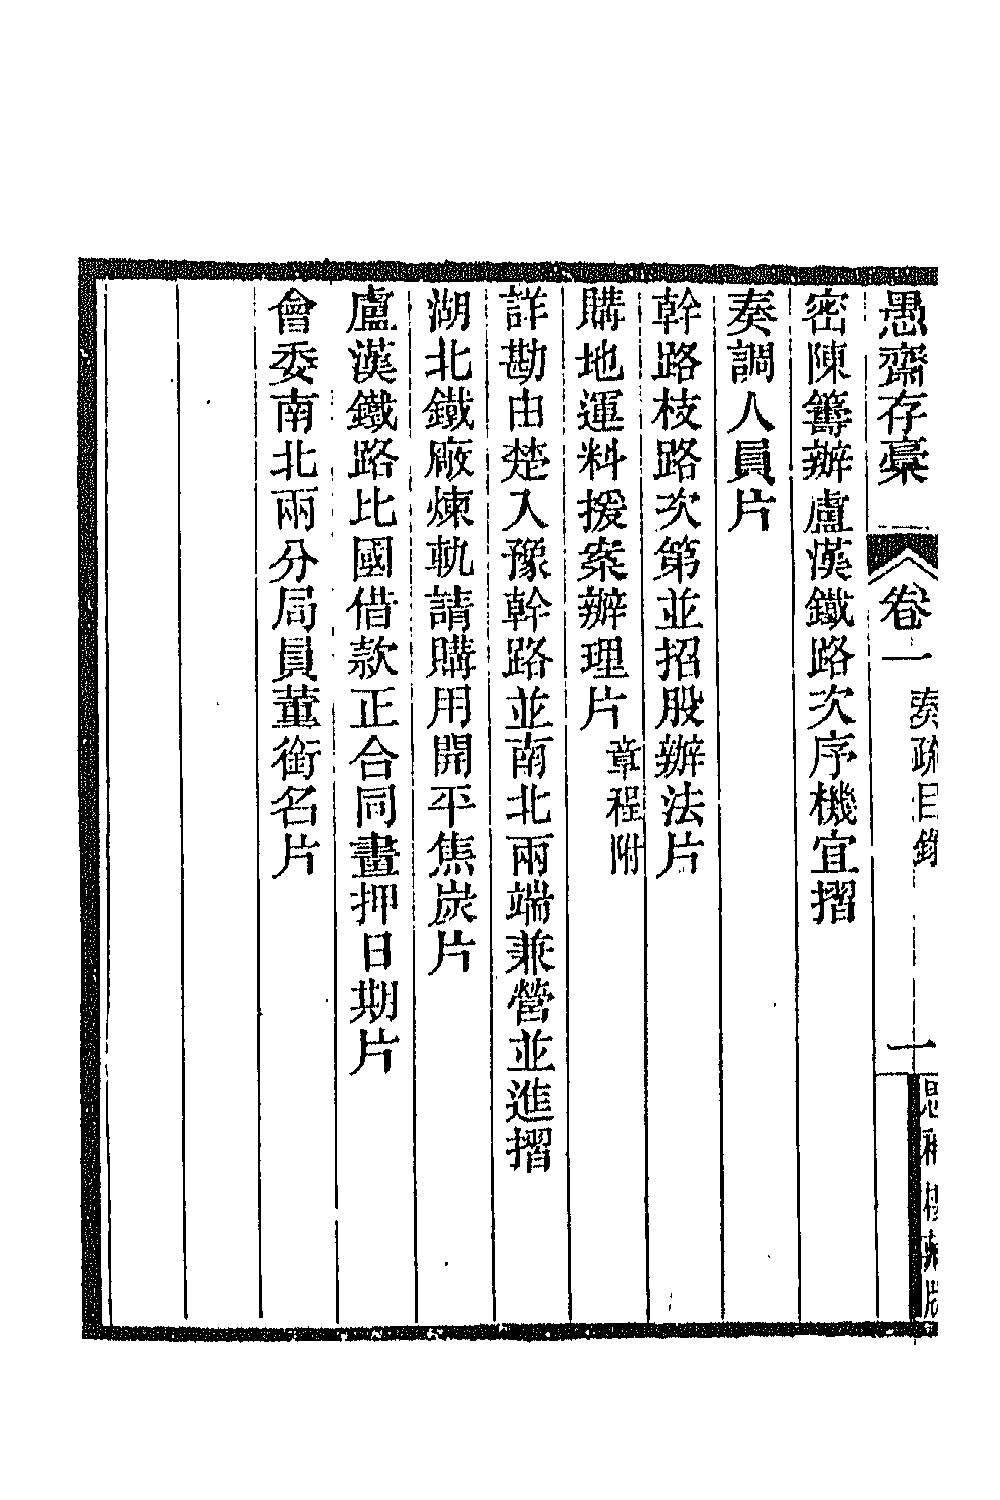 愚齋存藁
卷一
奏疏目錄
一
思補樓藏版
密陳籌辦盧漢鐵路次序機宜摺
奏調人員片
幹路枝路次第並招股辦法片
購地運料援案辦理片 章程附
詳勘由楚入豫幹路並南北兩端兼營並進摺
湖北鐵廠煉軌請購用開平焦炭片
盧漢鐵路比國借款正合同畫押日期片
會委南北兩分局員董銜名片